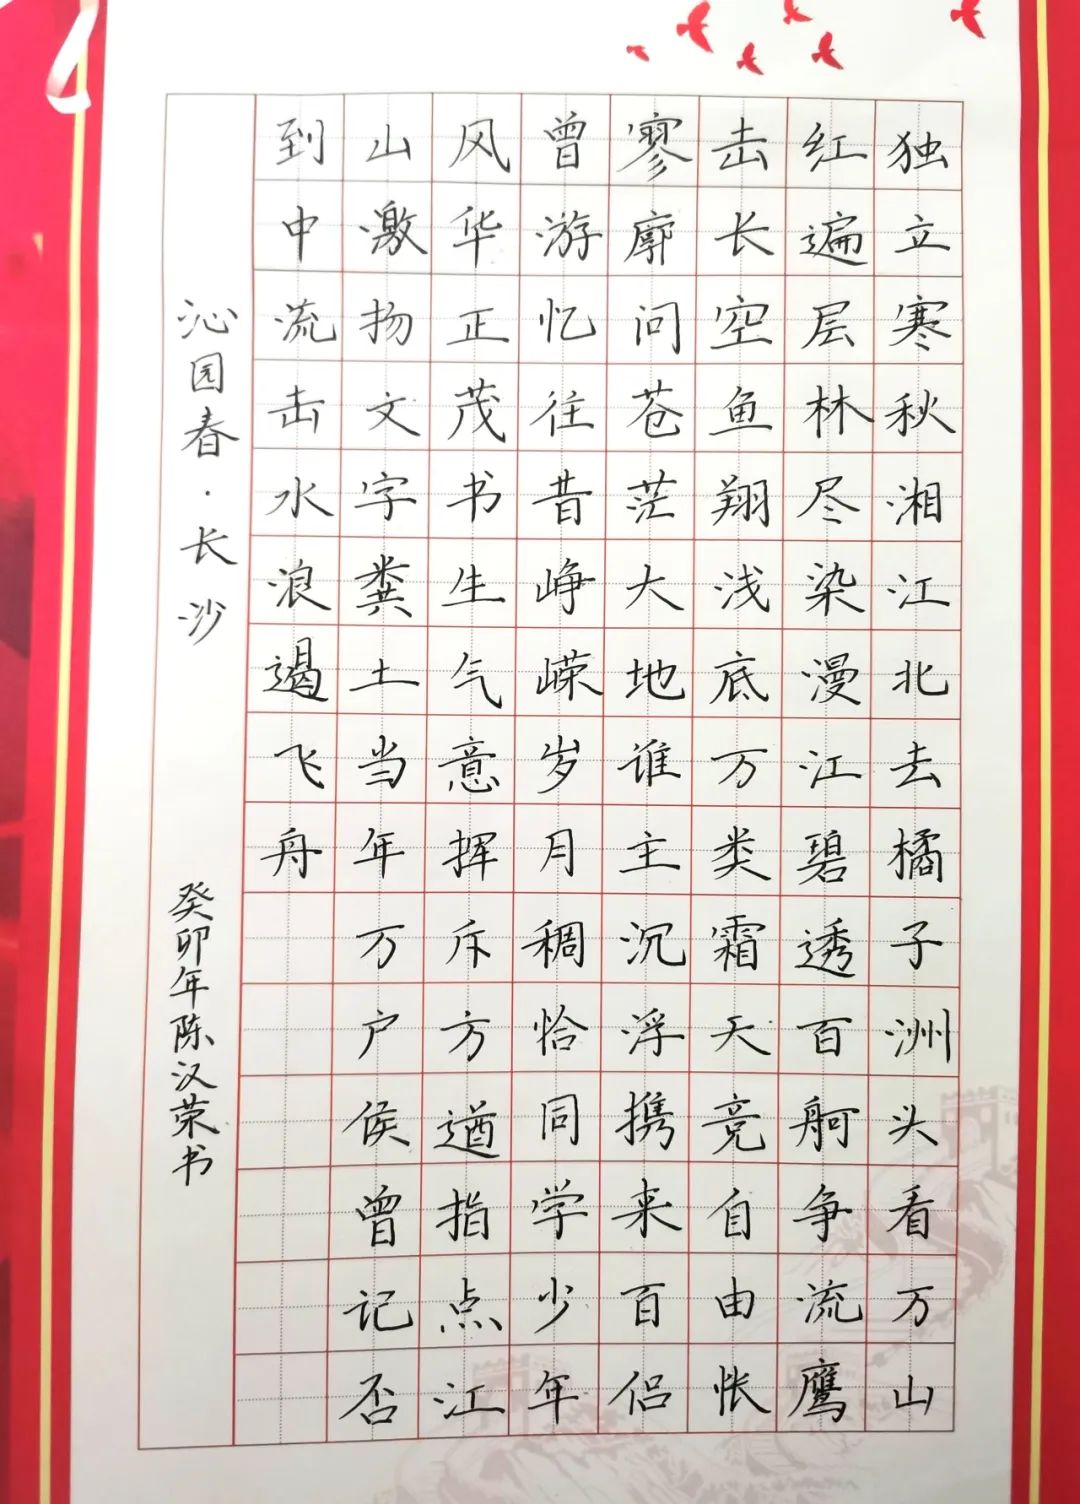 独立寒秋湘江北去橘子洲头看万山
红遍层林尽染漫江碧透百舸争流鹰
击长空鱼翔浅底万类霜天竞自由怅
寥廓问苍茫大地谁主沉浮携来百侣
曾游忆往昔峥嵘岁月稠恰同学少年
风华正茂书生气意挥斥方遒指点江
山激扬文字粪土当年万户侯曾记否
到中流击水浪遏飞舟
沁园春·长沙
癸卯年陈汉荣书